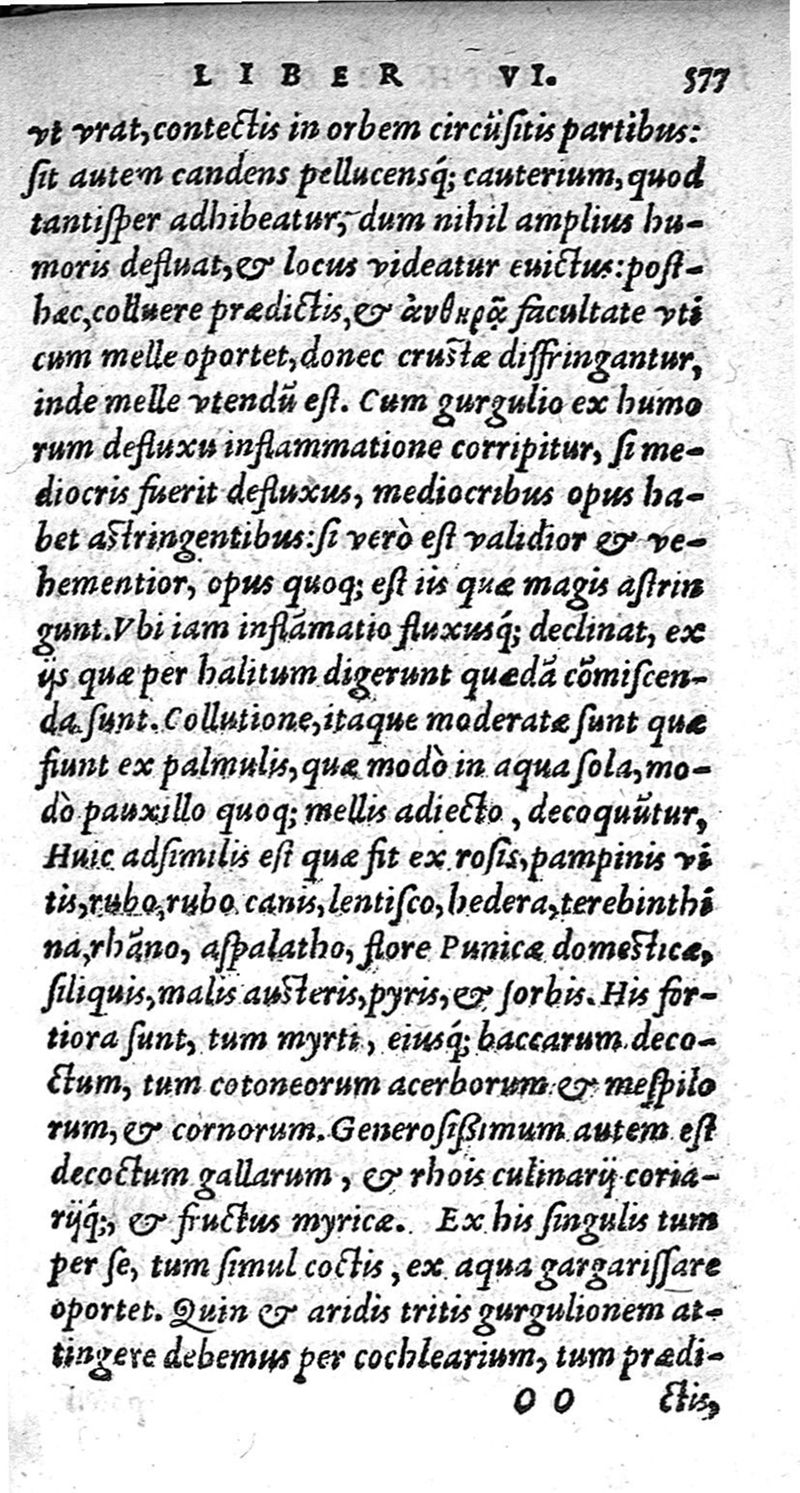 LIBER VI. 577
vt vrat, contectis in orbem circũsitis partibus:
sit autem candens pellucensq́; cauterium, quod
tantisper adhibeatur, dum nihil amplius hu-
moris defluat, & locus videatur euictus: post-
hac, colluere prædictis, & ἀνθηρᾷ facultate vti
cum melle oportet, donec crustæ diffringantur,
inde melle vtendũ est. Cum gurgulio ex humo
rum defluxu inflammatione corripitur, si me-
diocris fuerit defluxus, mediocribus opus ha-
bet astringentibus: si verò est validior & ve-
hementior, opus quoq; est iis quæ magis astrin
gunt. Vbi iam inflãmatio fluxusq́; declinat, ex
ijs quæ per halitum digerunt quædã cõmiscen-
da sunt. Collutione, itaque moderatæ sunt quæ
fiunt ex palmulis, quæ modò in aqua sola, mo-
dò pauxillo quoq; mellis adiecto, decoquũtur,
Huic adsimilis est quæ fit ex rosis, pampinis vi
tis, rubo, rubo canis, lentisco, hedera, terebinthi
na, rhãno, aspalatho, flore Punicæ domesticæ,
siliquis, malis austeris, pyris, & sorbis. His for-
tiora sunt, tum myrti, eiusq́; baccarum deco-
ctum, tum cotoneorum acerborum & mespilo
rum, & cornorum. Generosissimum autem est
decoctum gallarum, & rhois culinarij coria-
rijq́;, & fructus myricæ. Ex his singulis tum
per se, tum simul coctis, ex aqua gargarissare
oportet. Quin & aridis tritis gurgulionem at-
tingere debemus per cochlearium, tum prædi-
OO ctis,